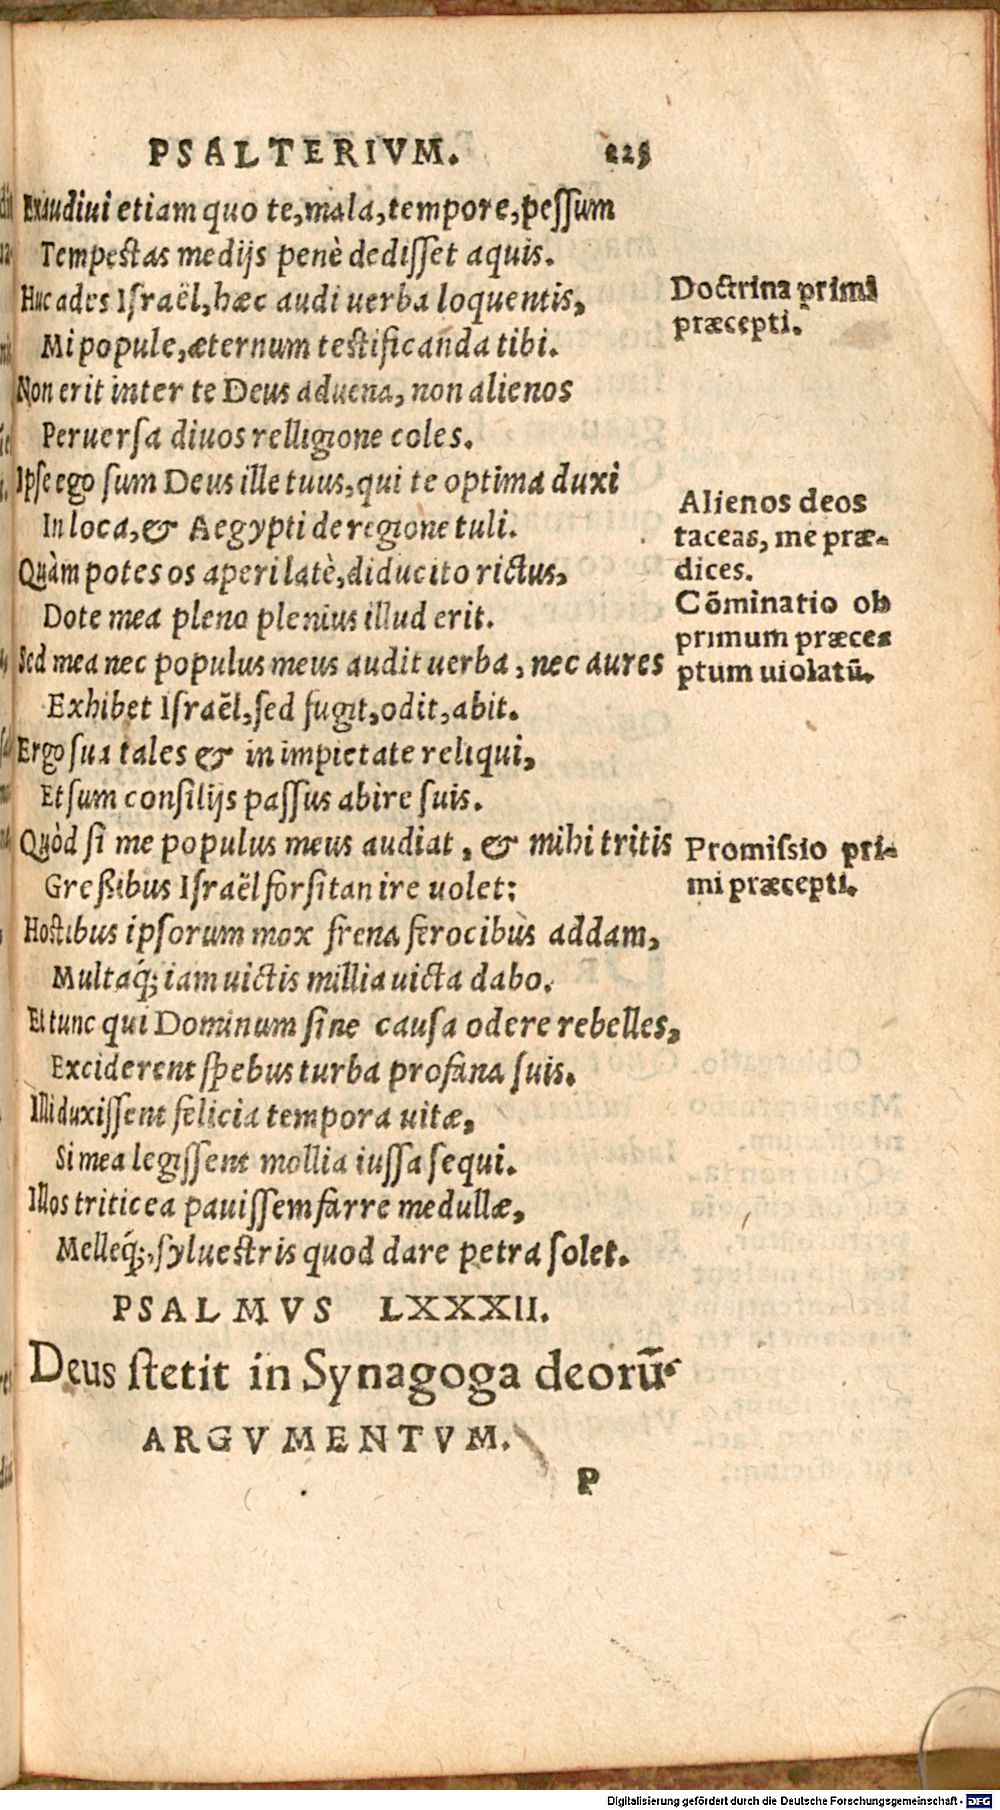 PSALTERIVM. 225
Exaudiui etiam quo te, mala, tempore, pessum
Tempestas medijs penè dedisset aquis.
Huc ades Israël, hæc audi uerba loquentis,
Mi popule, æternum testificanda tibi.
Doctrina primi
præcepti.
Non erit inter te Deus aduena, non alienos
Peruersa diuos relligione coles.
Ipse ego sum Deus ille tuus, qui te optima duxi
In loca, & Aegypti de regione tuli.
Alienos deos
taceas, me præ-
dices.
Quàm potes os aperi latè, diducito rictus,
Dote mea pleno plenius illud erit.
Cōminatio ob
primum præce-
ptum uiolatū.
Sed mea nec populus meus audit uerba, nec aures
Exhibet Israël, sed fugit, odit, abit.
Ergo sua tales & in impietate reliqui,
Et sum consilijs passus abire suis.
Quòd si me populus meus audiat, & mihi tritis
Greßibus Israël forsitan ire uolet:
Promissio pri-
mi præcepti.
Hostibus ipsorum mox frena ferocibus addam,
Multaq́; iam uictis millia uicta dabo.
Et tunc qui Dominum sine causa odere rebelles,
Exciderent spebus turba profana suis.
Illi duxissent felicia tempora uitæ,
Si mea legissent mollia iussa sequi.
Illos triticea pauissem farre medullæ,
Melleq́;, syluestris quod dare petra solet.
PSALMVS LXXXII.
Deus stetit in Synagoga deorū.
ARGVMENTVM.
P
Digitalisierung gefördert durch die Deutsche Forschungsgemeinschaft - DFG